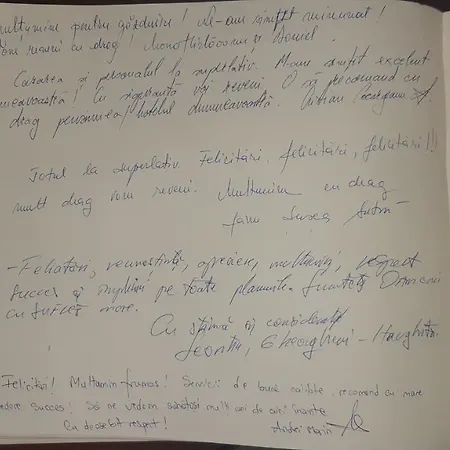 Mulțumim pentru găzduire! Ne-am simțit minunat!
Vom reveni cu drag!
Cazarea și personalul la superlativ. M-am simțit excelent
dumneavoastră! Cu siguranță voi reveni. O să recomand cu
drag pensiunea/hotelul dumneavoastră.
Totul la superlativ. Felicitări, felicitări, felicitări!!!
mult drag vom reveni. Mulțumim cu drag
fam
- Felicitări, recunoștință, apreciere, mulțumiri, respect
succes și împliniri pe toate planurile. Sunteți Domeni
cu suflet mare.
Cu stimă și considerație
Leontin, Gheorgheni - Harghita
Felicitări! Mulțumim frumos! Servicii de bună calitate, recomand cu mare
Succes! Să ne vedem sănătoși mulți ani de aici înainte
Cu deosebit respect! Andrei Marin